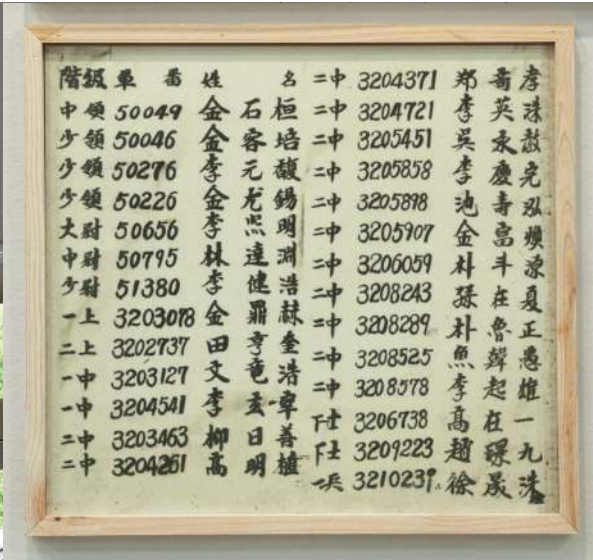 階級 軍番 姓名
中領 50049 金石桓
少領 50046 金容培
少領 50276 李元馥
少領 50226 金龙錫
大尉 50656 李熙明
中尉 50795 林達淵
少尉 51380 李健浩
一上 3203078 金鼎
二上 3202737 田亨奎
一中 3203127 文竜浩
一中 3204541 李孟寧
二中 3203463 柳日善
二中 3204261 高明植
二中 3204371 郑奇孝
二中 3204721 李英洙
二中 3205451 吳永
二中 3205858 李慶完
二中 3205898 池壽泓
二中 3205907 金富煥
二中 3206059 朴斗源
二中 3208243 孫在夏
二中 3208289 朴魯正
二中 3208525 魚愚
二中 3208578 李起雄
下士 3206738 高在一
下士 3209223 趙九
一兵 3210231 徐晟洙